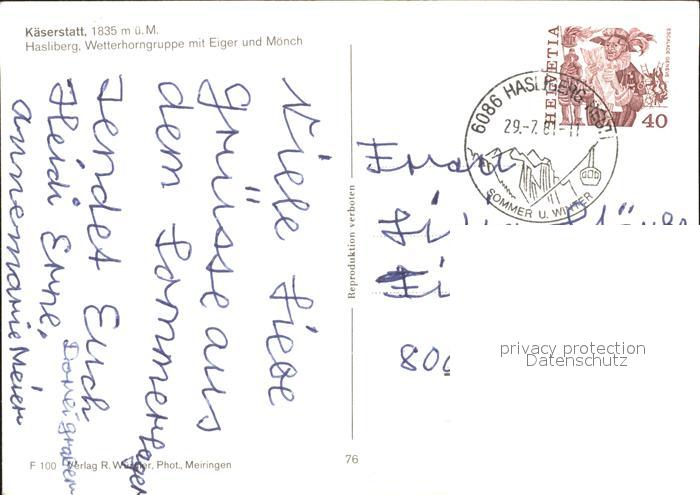 Käserstatt, 1835 m ü. M.
Hasliberg, Wetterhorngruppe mit Eiger und Mönch
Viele liebe
Grüsse aus
dem Sommerlager
sendet Euch
Heidi Erne,
annemarie Meier
F 100 Verlag R. Würgler, Phot., Meiringen
Reproduktion verboten
76
HELVETIA
ESCALADE GENÈVE
40
6086 HASLIBERG REUTI
29.-7.81-11
SOMMER U. WINTER
Frau
800
privacy protection
Datenschutz